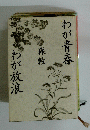 わが青春
森敦
わが放浪